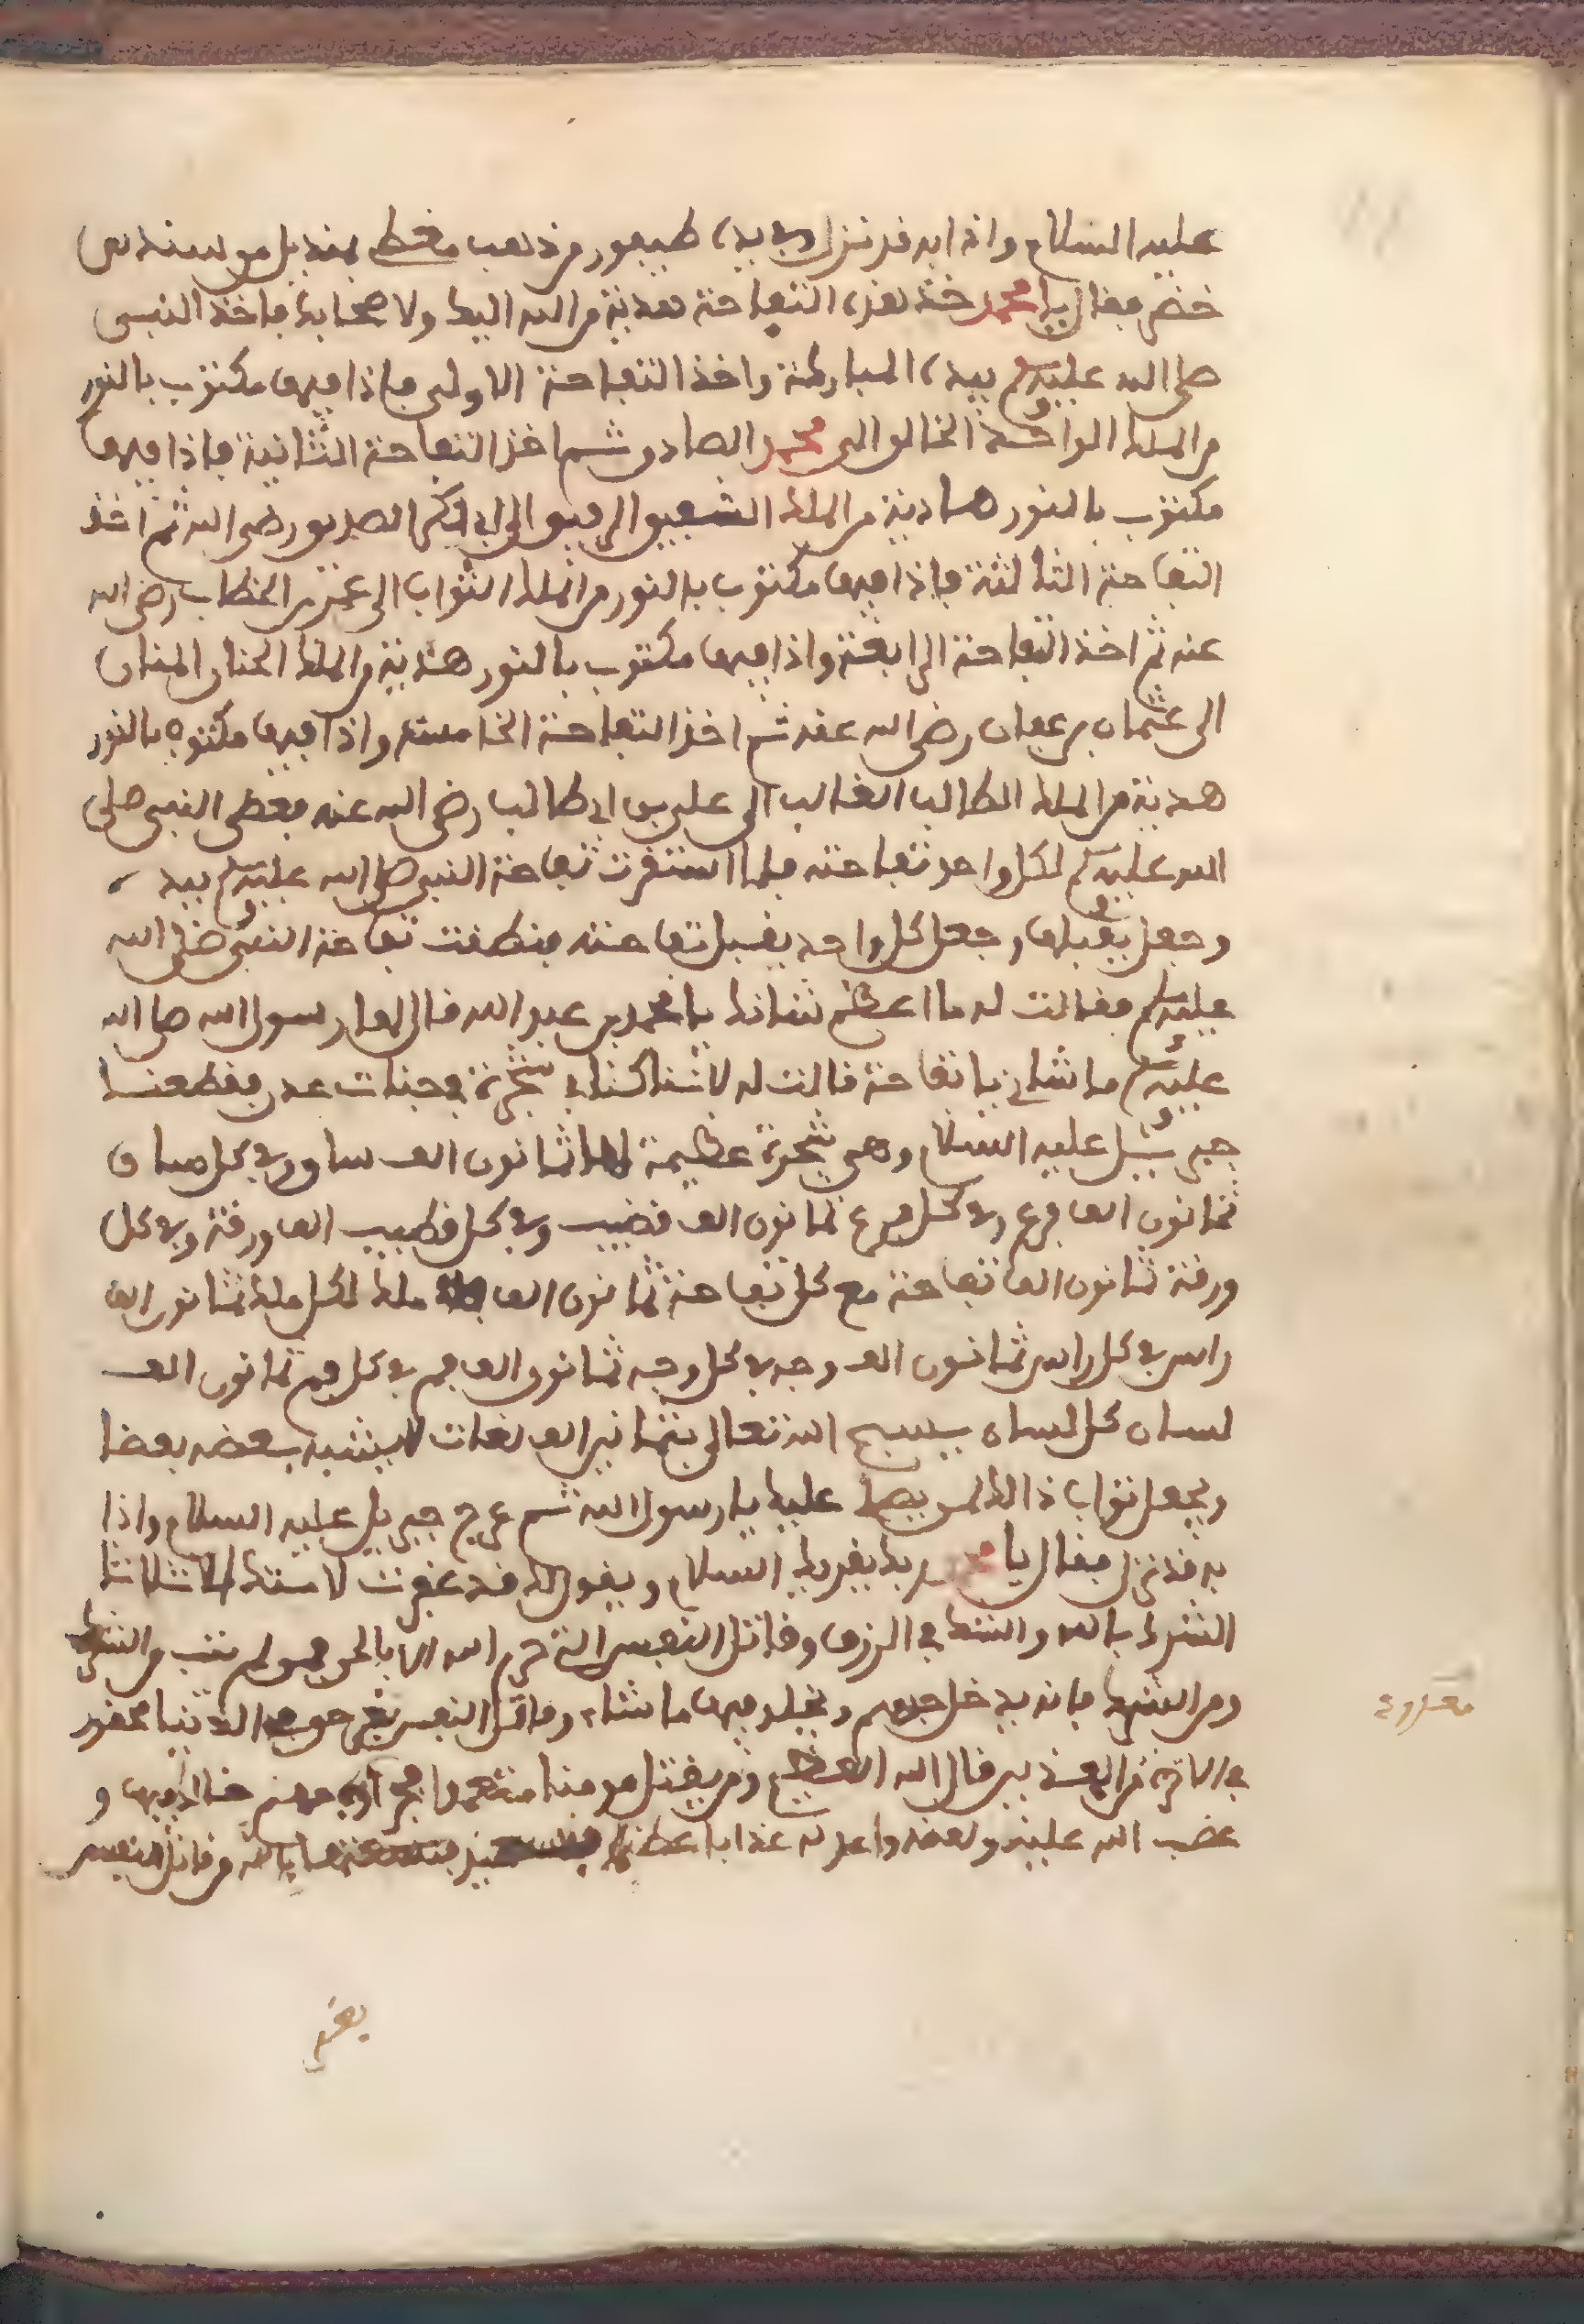 عليه السلام واذا به قد نزل وبيده طيفور من ذهب مغطى بمنديل من سندس
خضر فقال يا محمد خذ هذه التفاحة هدية من الله اليك ولاصحابك فاخذ النبي
صلى الله عليه وسلم بيده المباركة واخذ التفاحة الاولى فاذا فيها مكتوب بالنور
من الملك الواحد الخالق الى محمد الصادق ثم اخذ التفاحة الثانية فاذا فيها
مكتوب بالنور هدية من الملك الشفيق الرفيق الى ابي بكر الصديق رضي الله ثم اخذ
التفاحة الثالثة فاذا فيها مكتوب بالنور من الملك الثواب الى عمر بن الخطاب رضي الله
عنه ثم اخذ التفاحة الرابعة واذا فيها مكتوب بالنور هدية من الملك الحنان المنان
الى عثمان بن عفان رضي الله عنه ثم اخذ التفاحة الخامسة واذا فيها مكتوب بالنور
هدية من الملك الطالب الغالب الى علي بن ابي طالب رضي الله عنه فعطى النبي صلى
الله عليه وسلم لكل واحد تفاحته فلما استقرت تفاحة النبي صلى الله عليه وسلم بيده
وجعل يقبلها وجعل كل واحد يقبل تفاحته فنطقت تفاحة النبي صلى الله
عليه وسلم فقالت له ما اعظم شانك يا محمد بن عبد الله فقال لها رسول الله صلى الله
عليه وسلم ما شانك يا تفاحة قالت له لا شنا كنا في شجرة في جنات عدن فقطعنا
جبريل عليه السلام وهي شجرة عظيمة لها ثمانون الف ساق وفي كل ساق
ثمانون الف فرع وفي كل فرع ثمانون الف قضيب وفي كل قضيب الف ورقة وفي كل
ورقة ثمانون الف تفاحة مع كل تفاحة ثمانون الف ملك لكل ملك ثمانون الف
راس في كل راس ثمانون الف وجه في كل وجه ثمانون الف فم في كل فم ثمانون الف
لسان كل لسان يسبح الله تعالى بثمانين الف لغات لا يشبه بعضه بعضا
ويجعل ثواب ذالك لمن يصلي عليك يا رسول الله ثم عرج جبريل عليه السلام واذا
به قد نزل فقال يا محمد ربك يقريك السلام ويقول لك قد غفرت لامتك الا ثلاثا
الشرك بالله والشك في الرزق وقاتل النفس التي حرم الله الا بالحق فمن لم يتب من الشرك
ومن الشك فانه يدخل جهنم ويخلد فيها ما شاء وقاتل النفس بغير حق في الدنيا محفور
في الاخرة من الهذبين قال الله العظيم ومن يقتل مومنا متعمدا فجزاوه جهنم خالدا فيها و
غضب الله عليه ولعنه واعد له عذابا عظيما بالله من قاتل النفس
بغير